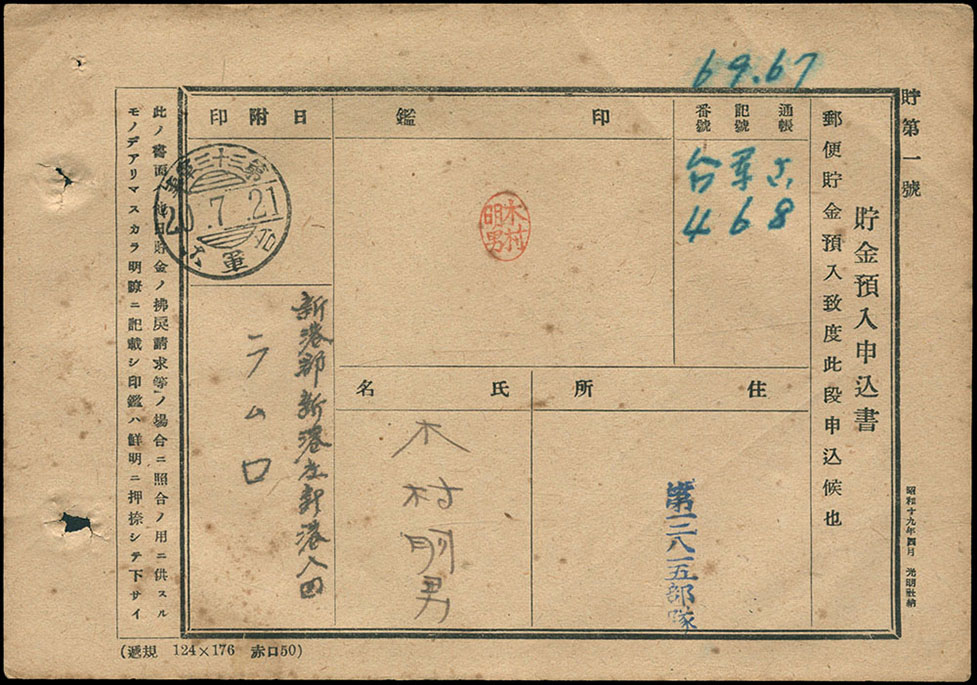 貯第一號
69.67
貯金預入申込書
郵便貯金預入致度此段申込候也
昭和十九年四月 光明社納
通帳
記號
番號
台軍
468
印鑑
木村
明男
日附印
第三十三野
20.7.21
軍
住所
第一二八一五部隊
氏名
木村明男
新港郡新港庄新港八四
ラムロ
此ノ書面ハ他日貯金ノ拂戻請求等ノ場合ニ照合ノ用ニ供スル
モノデアリマスカラ明瞭ニ記載シ印鑑ハ鮮明ニ押捺シテ下サイ
(遞規 124×176 赤口50)